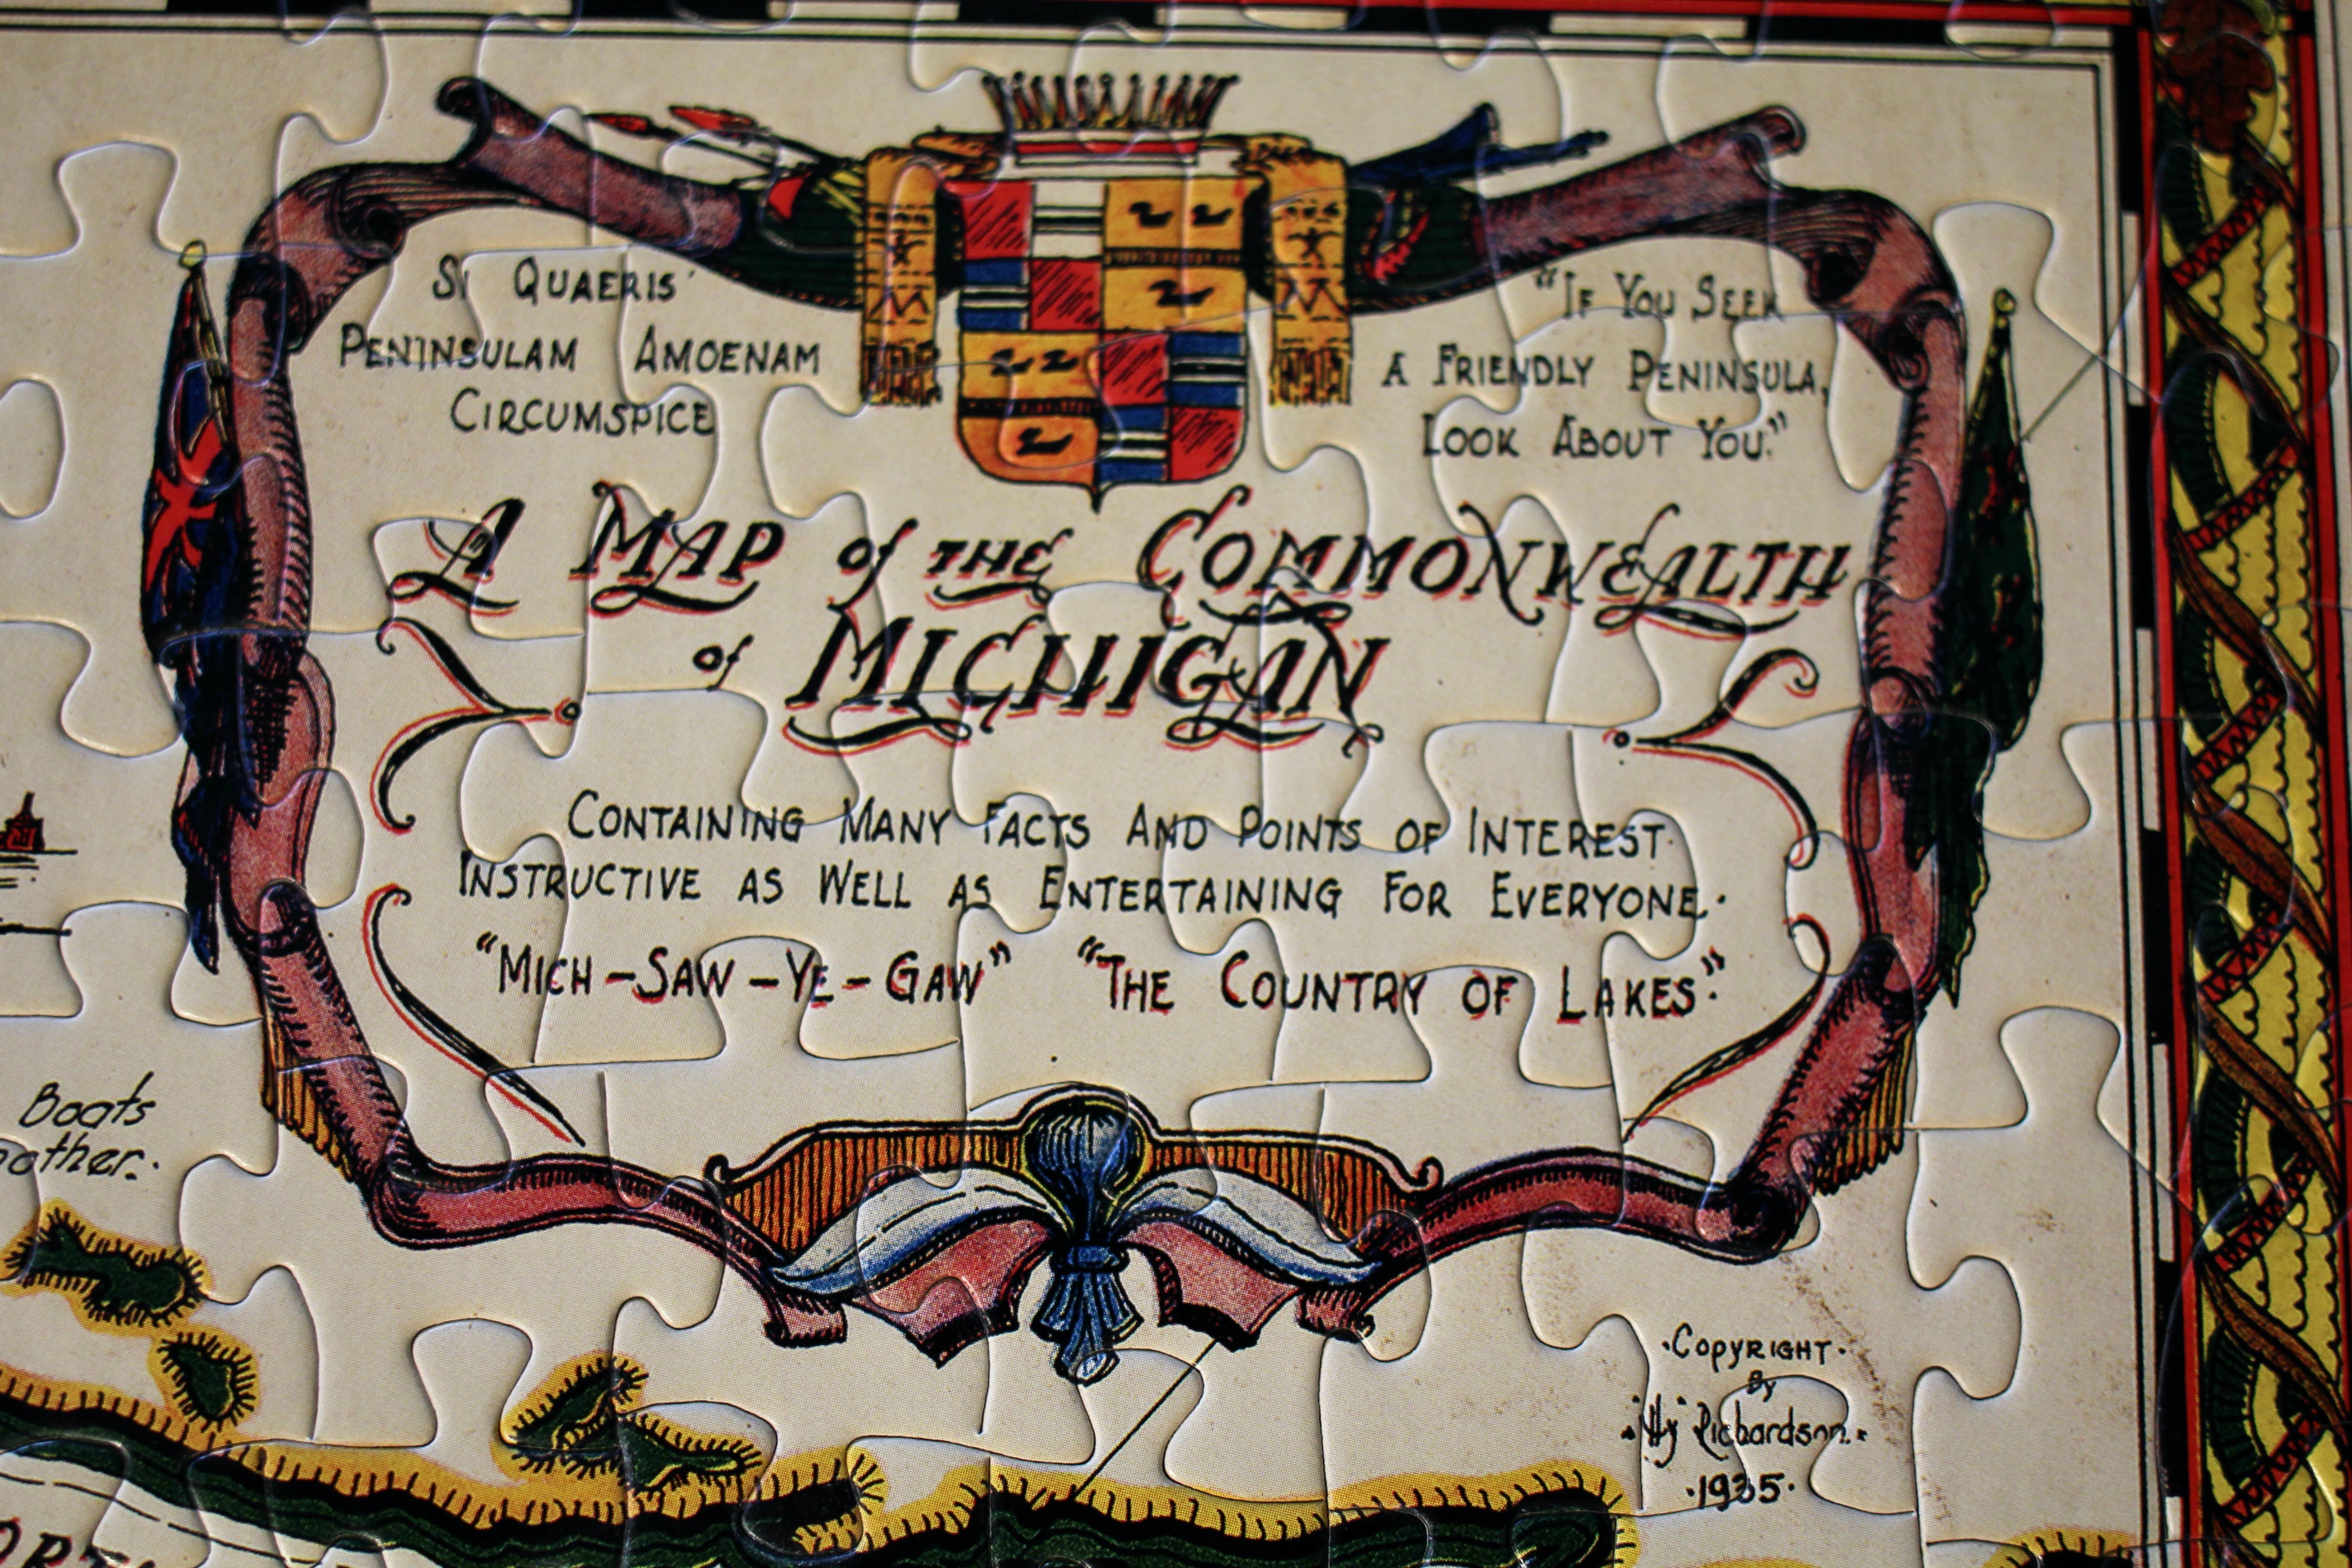 Si Quaeris
Peninsulam Amoenam
Circumspice
"If You Seek
A Friendly Peninsula,
Look About You."
A Map of the Commonwealth
of Michigan
Containing Many Facts And Points of Interest.
Instructive as Well as Entertaining For Everyone.
"Mich-Saw-Ye-Gaw" "The Country of Lakes."
Boats
other.
·Copyright·
By
Richardson.
·1935·